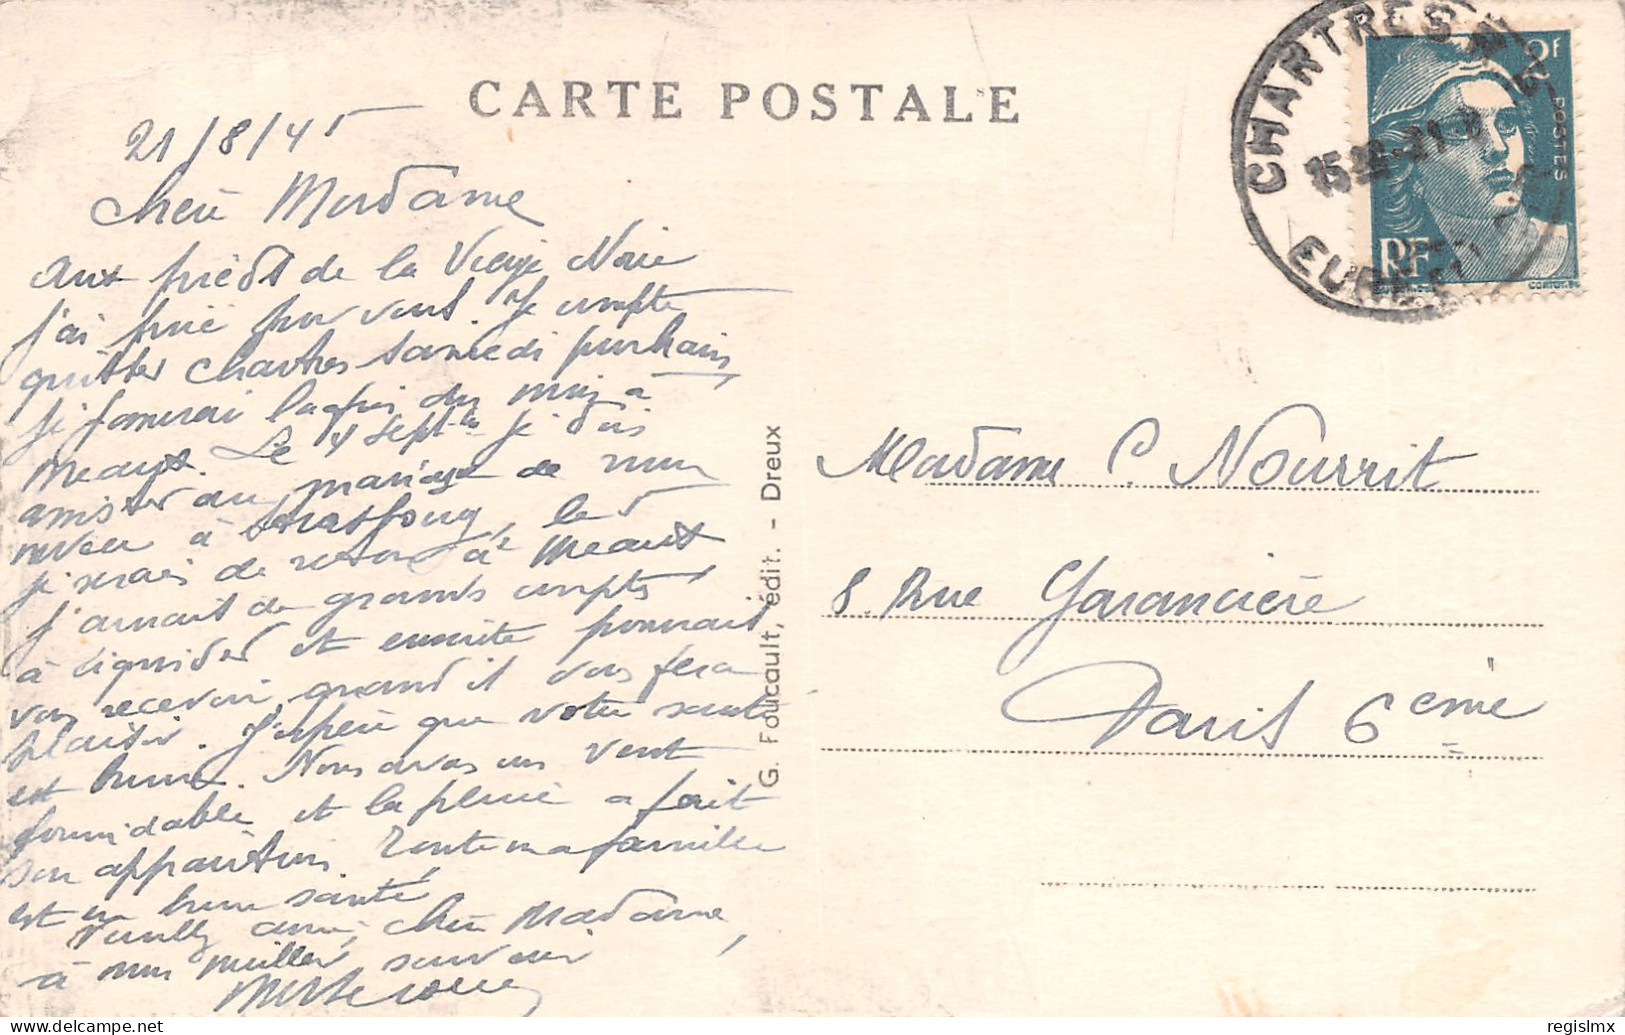 CARTE POSTALE
21/8/45
Chère Madame
aux pieds de la Vierge Noire
j'ai prié pour vous. Je compte
quitter Chartres samedi prochain
je passerai la fin du mois à
Meaux. Le 4 Sept. je dois
assister au mariage de mon
neveu à Strasbourg, le 5
je serais de retour à Meaux
j'aurait de grands comptes
à liquider et ensuite pourrait
vous recevoir quand il vous fera
plaisir. J'espère que votre santé
est bonne. Nous avons un vent
formidable et la pluie a fait
son apparition. Toute ma famille
est en bonne santé
Veuillez croire, chère Madame,
à mon meilleur souvenir
G. Foucault, édit. - Dreux
CHARTRES
15
21-8
EURE
2F
POSTES
RF
Madame C. Nourrit
8 Rue Garancière
Paris 6ème
www.delcampe.net
regislmx